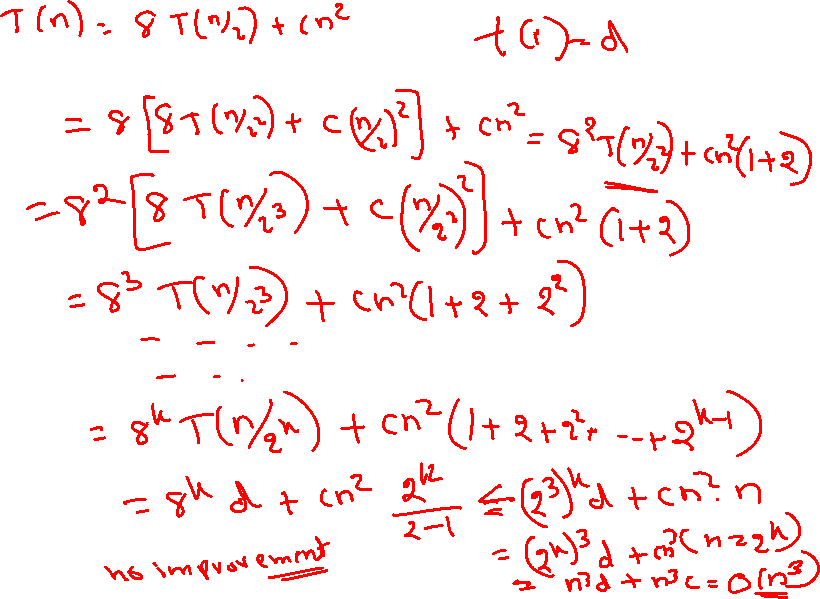 T(n) = 8 T(n/2) + cn²    t(1) = d
= 8 [8T(n/2²) + c(n/2)²] + cn² = 8²T(n/2²) + cn²(1+2)
= 8² [8 T(n/2³) + c(n/2²)²] + cn² (1+2)
= 8³ T(n/2³) + cn²(1+2+2²)
- - . .
- - .
= 8ᵏ T(n/2ᵏ) + cn² (1+2+2²+ --+2ᵏ⁻¹)
= 8ᵏ d + cn² 2ᵏ/(2-1) ≤ (2³)ᵏd + cn².n
= (2ᵏ)³ d + cn³ (n=2ᵏ)
no improvement
= n³d + n³c = O(n³)